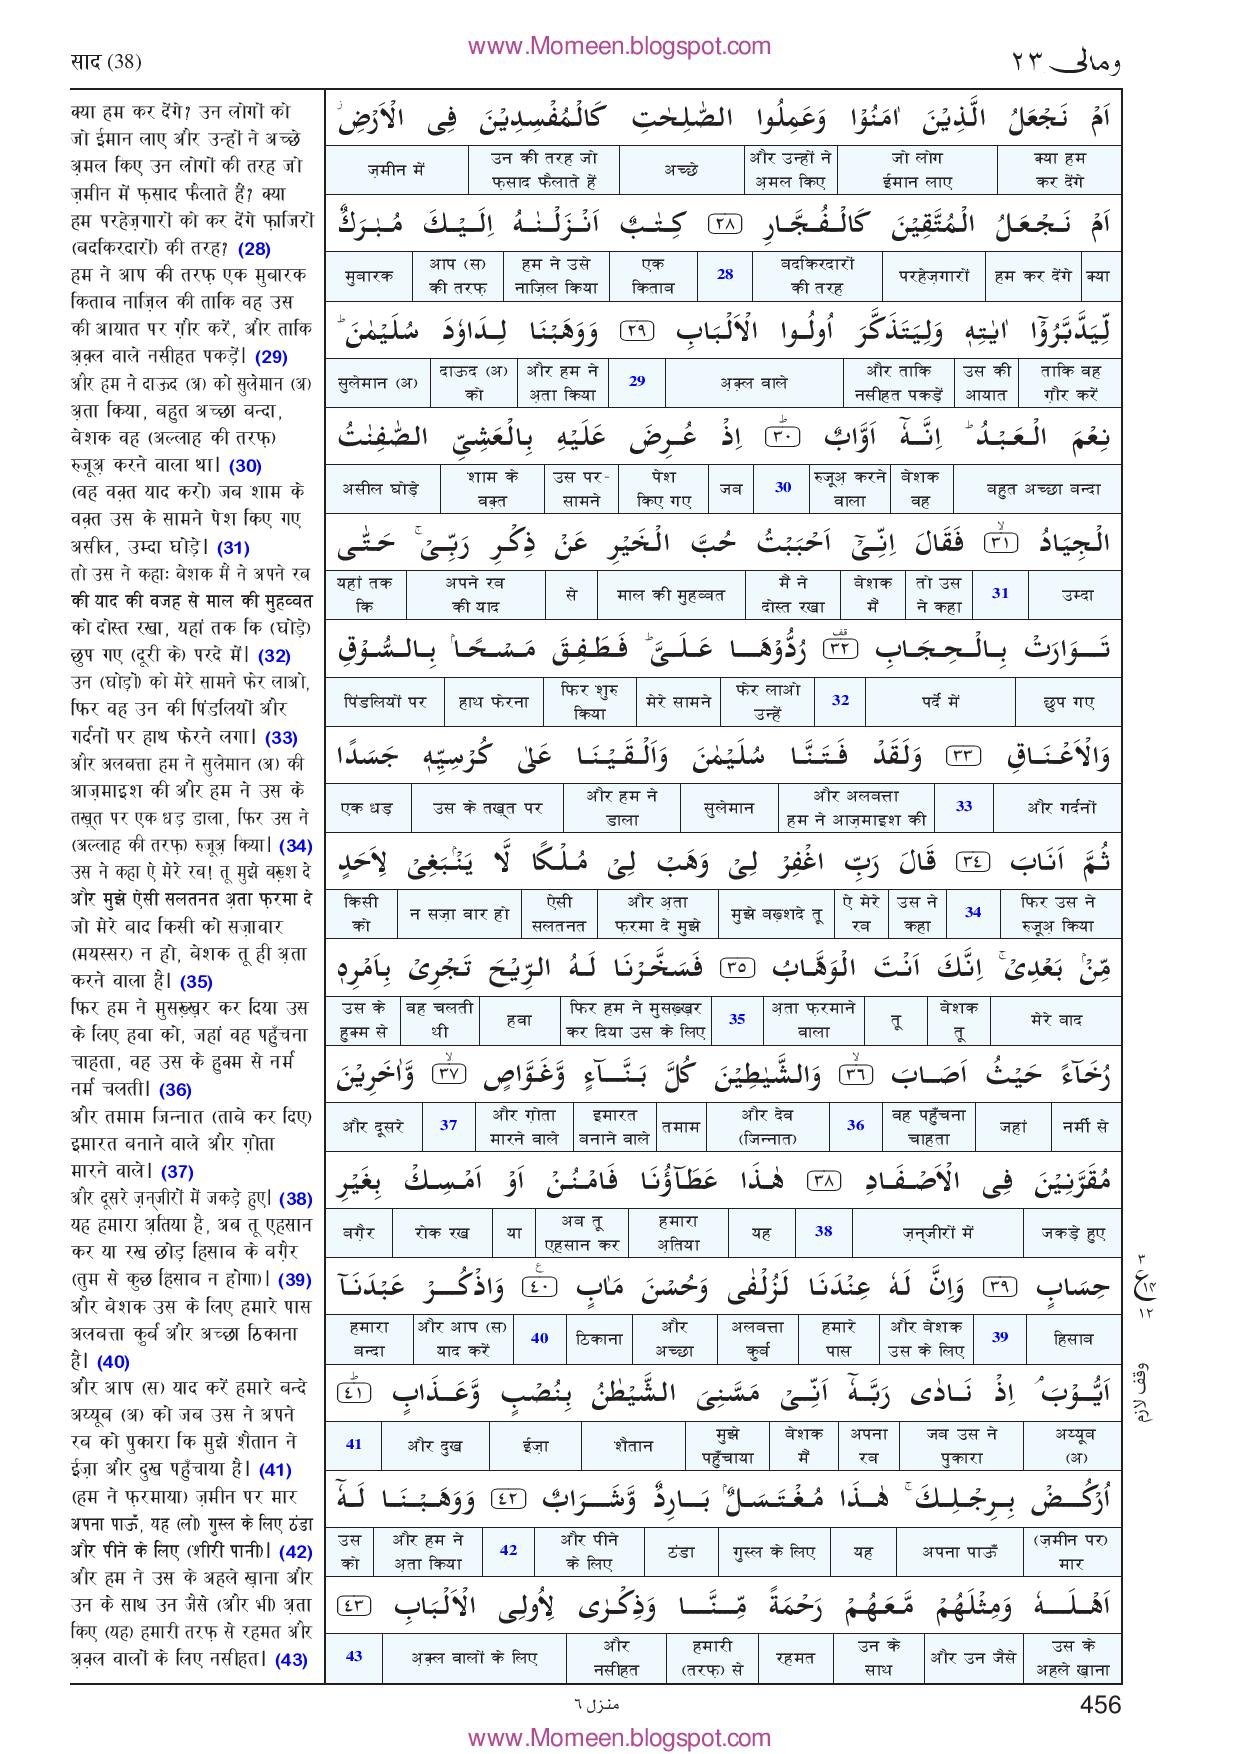 www.Momeen.blogspot.com
साद (38)
ومالى ٢٣
क्या हम कर देंगे? उन लोगों को
जो ईमान लाए और उन्हों ने अच्छे
अ़मल किए उन लोगों की तरह जो
ज़मीन में फ़साद फैलाते हैं? क्या
हम परहेज़गारों को कर देंगे फ़ाजिरों
(बदकिरदारों) की तरह? (28)
हम ने आप की तरफ़ एक मुबारक
किताब नाज़िल की ताकि वह उस
की आयात पर ग़ौर करें, और ताकि
अ़क़्ल वाले नसीहत पकड़ें। (29)
और हम ने दाऊद (अ) को सुलेमान (अ)
अ़ता किया, बहुत अच्छा बन्दा,
बेशक वह (अल्लाह की तरफ़)
रुजूअ़ करने वाला था। (30)
(वह वक़्त याद करो) जब शाम के
वक़्त उस के सामने पेश किए गए
असील, उम्दा घोड़े। (31)
तो उस ने कहाः बेशक मैं ने अपने रब
की याद की वजह से माल की मुहब्बत
को दोस्त रखा, यहां तक कि (घोड़े)
छुप गए (दूरी के) परदे में। (32)
उन (घोड़ों) को मेरे सामने फेर लाओ,
फिर वह उन की पिंडलियों और
गर्दनों पर हाथ फेरने लगा। (33)
और अलबत्ता हम ने सुलेमान (अ) की
आज़माइश की और हम ने उस के
तख़्त पर एक धड़ डाला, फिर उस ने
(अल्लाह की तरफ़) रुजूअ़ किया। (34)
उस ने कहा ऐ मेरे रब! तू मुझे बख़्श दे
और मुझे ऐसी सलतनत अ़ता फ़रमा दे
जो मेरे बाद किसी को सज़ावार
(मयस्सर) न हो, बेशक तू ही अ़ता
करने वाला है। (35)
फिर हम ने मुसख़्ख़र कर दिया उस
के लिए हवा को, जहां वह पहुँचना
चाहता, वह उस के हुक्म से नर्म
नर्म चलती। (36)
और तमाम जिन्नात (ताबे कर दिए)
इमारत बनाने वाले और ग़ोता
मारने वाले। (37)
और दूसरे ज़न्जीरों में जकड़े हुए। (38)
यह हमारा अ़तिया है, अब तू एहसान
कर या रख छोड़ हिसाब के बग़ैर
(तुम से कुछ हिसाब न होगा)। (39)
और बेशक उस के लिए हमारे पास
अलबत्ता कुर्ब और अच्छा ठिकाना
है। (40)
और आप (स) याद करें हमारे बन्दे
अय्यूब (अ) को जब उस ने अपने
रब को पुकारा कि मुझे शैतान ने
ईज़ा और दुख पहुँचाया है। (41)
(हम ने फ़रमाया) ज़मीन पर मार
अपना पाऊँ, यह (लो) गुस्ल के लिए ठंडा
और पीने के लिए (शीरी पानी)। (42)
और हम ने उस के अहले ख़ाना और
उन के साथ उन जैसे (और भी) अ़ता
किए (यह) हमारी तरफ़ से रहमत और
अ़क़्ल वालों के लिए नसीहत। (43)
اَمۡ نَجۡعَلُ الَّذِيۡنَ اٰمَنُوۡا وَعَمِلُوا الصّٰلِحٰتِ كَالۡمُفۡسِدِيۡنَ فِى الۡاَرۡضِ‌ۚ
क्या हम कर देंगे | जो लोग ईमान लाए | और उन्हों ने अ़मल किए | अच्छे | उन की तरह जो फ़साद फैलाते हैं | ज़मीन में
اَمۡ نَجۡعَلُ الۡمُتَّقِيۡنَ كَالۡفُجَّارِ ﴿٢٨﴾ كِتٰبٌ اَنۡزَلۡنٰهُ اِلَيۡكَ مُبٰرَكٌ
क्या | हम कर देंगे | परहेज़गारों | बदकिरदारों की तरह | 28 | एक किताब | हम ने उसे नाज़िल किया | आप (स) की तरफ़ | मुबारक
لِّيَدَّبَّرُوۡۤا اٰيٰتِهٖ وَلِيَتَذَكَّرَ اُولُوا الۡاَلۡبَابِ ﴿٢٩﴾ وَوَهَبۡنَا لِدَاوٗدَ سُلَيۡمٰنَ‌ؕ
ताकि वह ग़ौर करें | उस की आयात | और ताकि नसीहत पकड़ें | अ़क़्ल वाले | 29 | और हम ने अ़ता किया | दाऊद (अ) को | सुलेमान (अ)
نِعۡمَ الۡعَبۡدُ‌ؕ اِنَّهٗۤ اَوَّابٌ ﴿٣٠﴾ اِذۡ عُرِضَ عَلَيۡهِ بِالۡعَشِىِّ الصّٰفِنٰتُ
बहुत अच्छा बन्दा | बेशक वह | रुजूअ़ करने वाला | 30 | जब | पेश किए गए | उस पर-सामने | शाम के वक़्त | असील घोड़े
الۡجِيَادُ ﴿٣١﴾ فَقَالَ اِنِّىۡۤ اَحۡبَبۡتُ حُبَّ الۡخَيۡرِ عَنۡ ذِكۡرِ رَبِّىۡ‌ۚ حَتّٰى
उम्दा | 31 | तो उस ने कहा | बेशक मैं | मैं ने दोस्त रखा | माल की मुहब्बत | से | अपने रब की याद | यहां तक कि
تَوَارَتۡ بِالۡحِجَابِ ﴿٣٢﴾ رُدُّوۡهَا عَلَىَّ‌ؕ فَطَفِقَ مَسۡحًاۢ بِالسُّوۡقِ
छुप गए | पर्दे में | 32 | फेर लाओ उन्हें | मेरे सामने | फिर शुरु किया | हाथ फेरना | पिंडलियों पर
وَالۡاَعۡنَاقِ ﴿٣٣﴾ وَلَقَدۡ فَتَنَّا سُلَيۡمٰنَ وَاَلۡقَيۡنَا عَلٰى كُرۡسِيِّهٖ جَسَدًا
और गर्दनों | 33 | और अलबत्ता हम ने आज़माइश की | सुलेमान | और हम ने डाला | उस के तख़्त पर | एक धड़
ثُمَّ اَنَابَ ﴿٣٤﴾ قَالَ رَبِّ اغۡفِرۡ لِىۡ وَهَبۡ لِىۡ مُلۡكًا لَّا يَنۡۢبَغِىۡ لِاَحَدٍ
फिर उस ने रुजूअ़ किया | 34 | उस ने कहा | ऐ मेरे रब | मुझे बख़्शदे तू | और अ़ता फ़रमा दे मुझे | ऐसी सलतनत | न सज़ा वार हो | किसी को
مِّنۡۢ بَعۡدِىۡ‌ۚ اِنَّكَ اَنۡتَ الۡوَهَّابُ ﴿٣٥﴾ فَسَخَّرۡنَا لَهُ الرِّيۡحَ تَجۡرِىۡ بِاَمۡرِهٖ
मेरे बाद | बेशक तू | तू | अ़ता फ़रमाने वाला | 35 | फिर हम ने मुसख़्ख़र कर दिया उस के लिए | हवा | वह चलती थी | उस के हुक्म से
رُخَآءً حَيۡثُ اَصَابَ ﴿٣٦﴾ وَالشَّيٰطِيۡنَ كُلَّ بَنَّآءٍ وَّغَوَّاصٍ ﴿٣٧﴾ وَّاٰخَرِيۡنَ
नर्मी से | जहां | वह पहुँचना चाहता | 36 | और देव (जिन्नात) | तमाम | इमारत बनाने वाले | और ग़ोता मारने वाले | 37 | और दूसरे
مُقَرَّنِيۡنَ فِى الۡاَصۡفَادِ ﴿٣٨﴾ هٰذَا عَطَآؤُنَا فَامۡنُنۡ اَوۡ اَمۡسِكۡ بِغَيۡرِ
जकड़े हुए | ज़न्जीरों में | 38 | यह | हमारा अ़तिया | अब तू एहसान कर | या | रोक रख | बग़ैर
حِسَابٍ ﴿٣٩﴾ وَاِنَّ لَهٗ عِنۡدَنَا لَزُلۡفٰى وَحُسۡنَ مَاٰبٍ ﴿٤٠﴾ وَاذۡكُرۡ عَبۡدَنَاۤ
हिसाब | 39 | और बेशक उस के लिए | हमारे पास | अलबत्ता कुर्ब | और अच्छा | ठिकाना | 40 | और आप (स) याद करें | हमारा बन्दा
اَيُّوۡبَ‌ۘ اِذۡ نَادٰى رَبَّهٗۤ اَنِّىۡ مَسَّنِىَ الشَّيۡطٰنُ بِنُصۡبٍ وَّعَذَابٍ ﴿٤١﴾
अय्यूब (अ) | जब उस ने पुकारा | अपना रब | बेशक मैं | मुझे पहुँचाया | शैतान | ईज़ा | और दुख | 41
اُرۡكُضۡ بِرِجۡلِكَ‌ۚ هٰذَا مُغۡتَسَلٌۢ بَارِدٌ وَّشَرَابٌ ﴿٤٢﴾ وَوَهَبۡنَا لَهٗۤ
(ज़मीन पर) मार | अपना पाऊँ | यह | गुस्ल के लिए | ठंडा | और पीने के लिए | 42 | और हम ने अ़ता किया | उस को
اَهۡلَهٗ وَمِثۡلَهُمۡ مَّعَهُمۡ رَحۡمَةً مِّنَّا وَذِكۡرٰى لِاُولِى الۡاَلۡبَابِ ﴿٤٣﴾
उस के अहले ख़ाना | और उन जैसे | उन के साथ | रहमत | हमारी (तरफ़) से | और नसीहत | अ़क़्ल वालों के लिए | 43
٣
ع
١٢
وقف لازم
منزل ٦
456
www.Momeen.blogspot.com